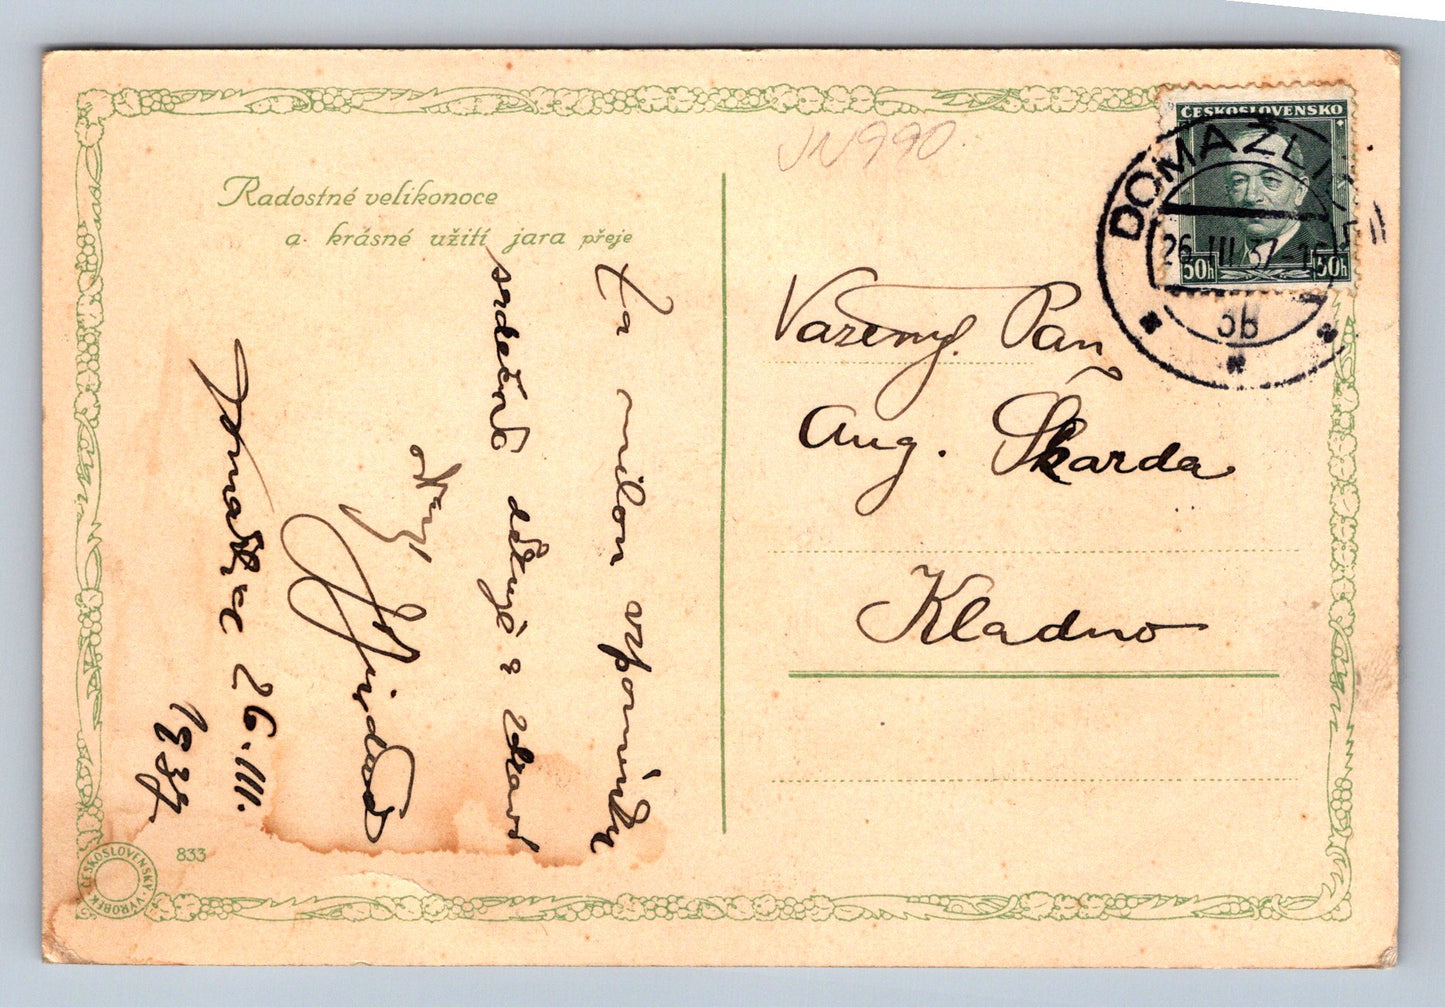 Radostné velikonoce
a krásné užití jara přeje
Za milou vzpomínku
srdečně děkuje a zdraví
Domažlice 26.III.
1937
833
ČESKOSLOVENSKÝ VÝROBEK
VV990
ČESKOSLOVENSKO
50h 50h
DOMAŽLICE
26.III.37
3B
Vážený Pan
Aug. Škarda
Kladno